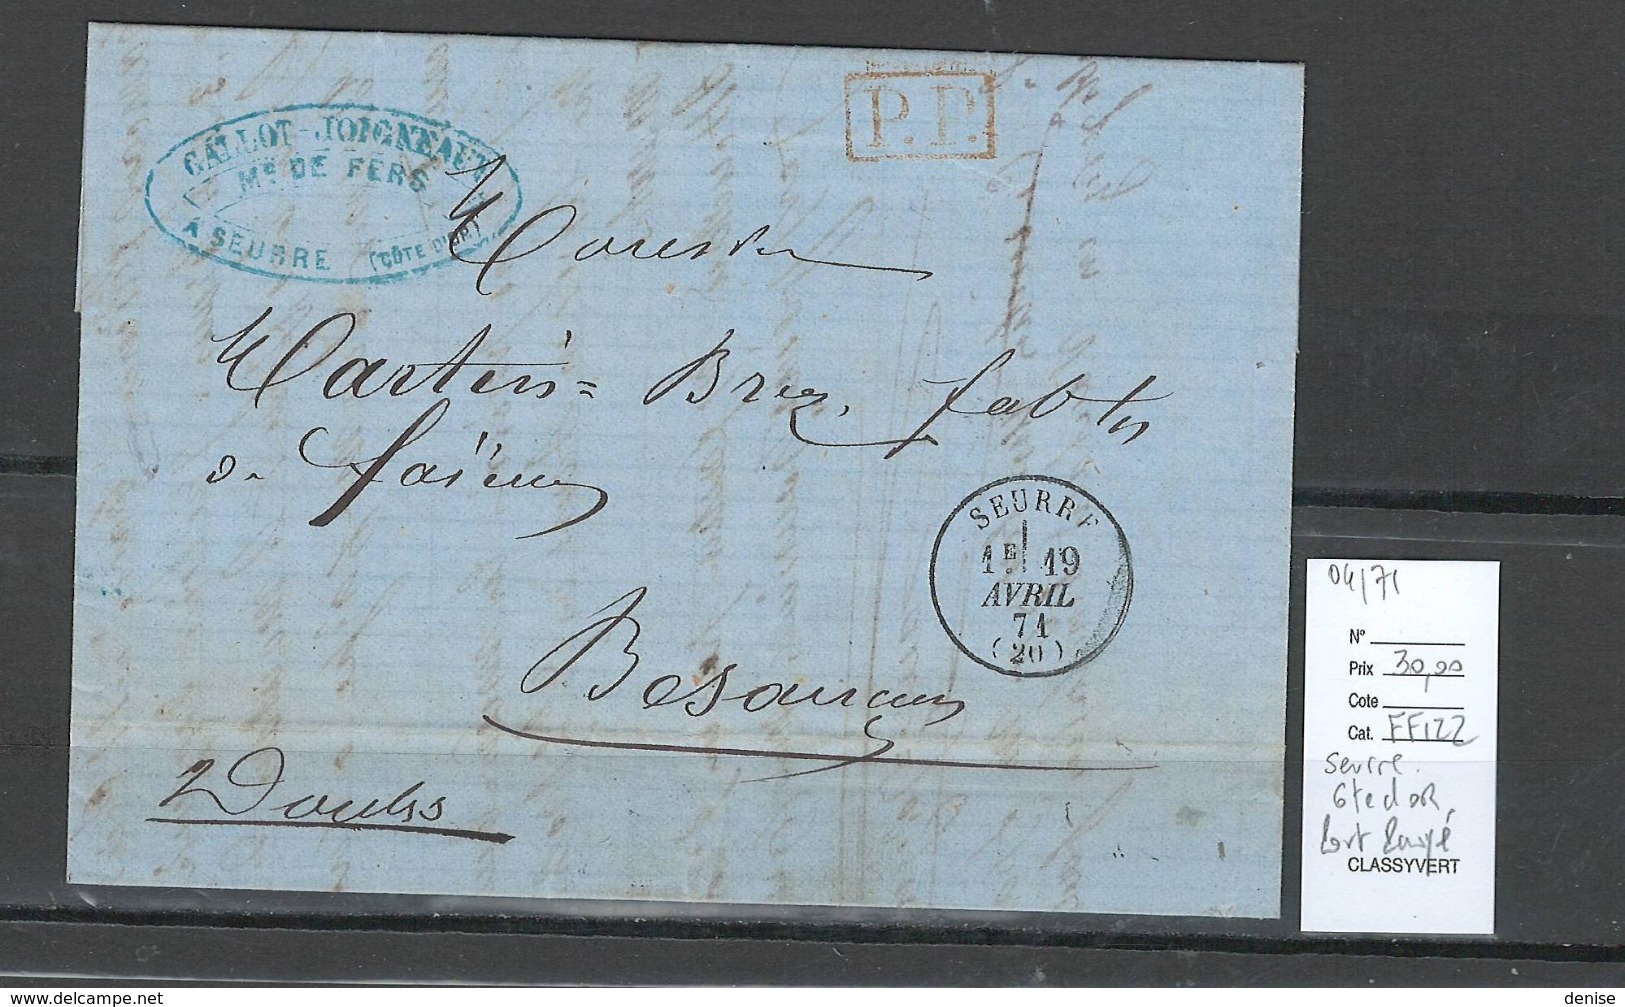 GALLOT-JOIGNEAUX
Md DE FERS
A SEURRE (CÔTE D'OR)
P.P.
Monsieur
Martin= Brez, fabt
de
Besançon
Doubs
SEURRE
1E 19
AVRIL
71
(20)
04/71
N°
Prix 30,00
Cote
Cat. FF122
Seurre.
Cote d'or,
Port Payé
CLASSYVERT
www.delcampe.net
denise